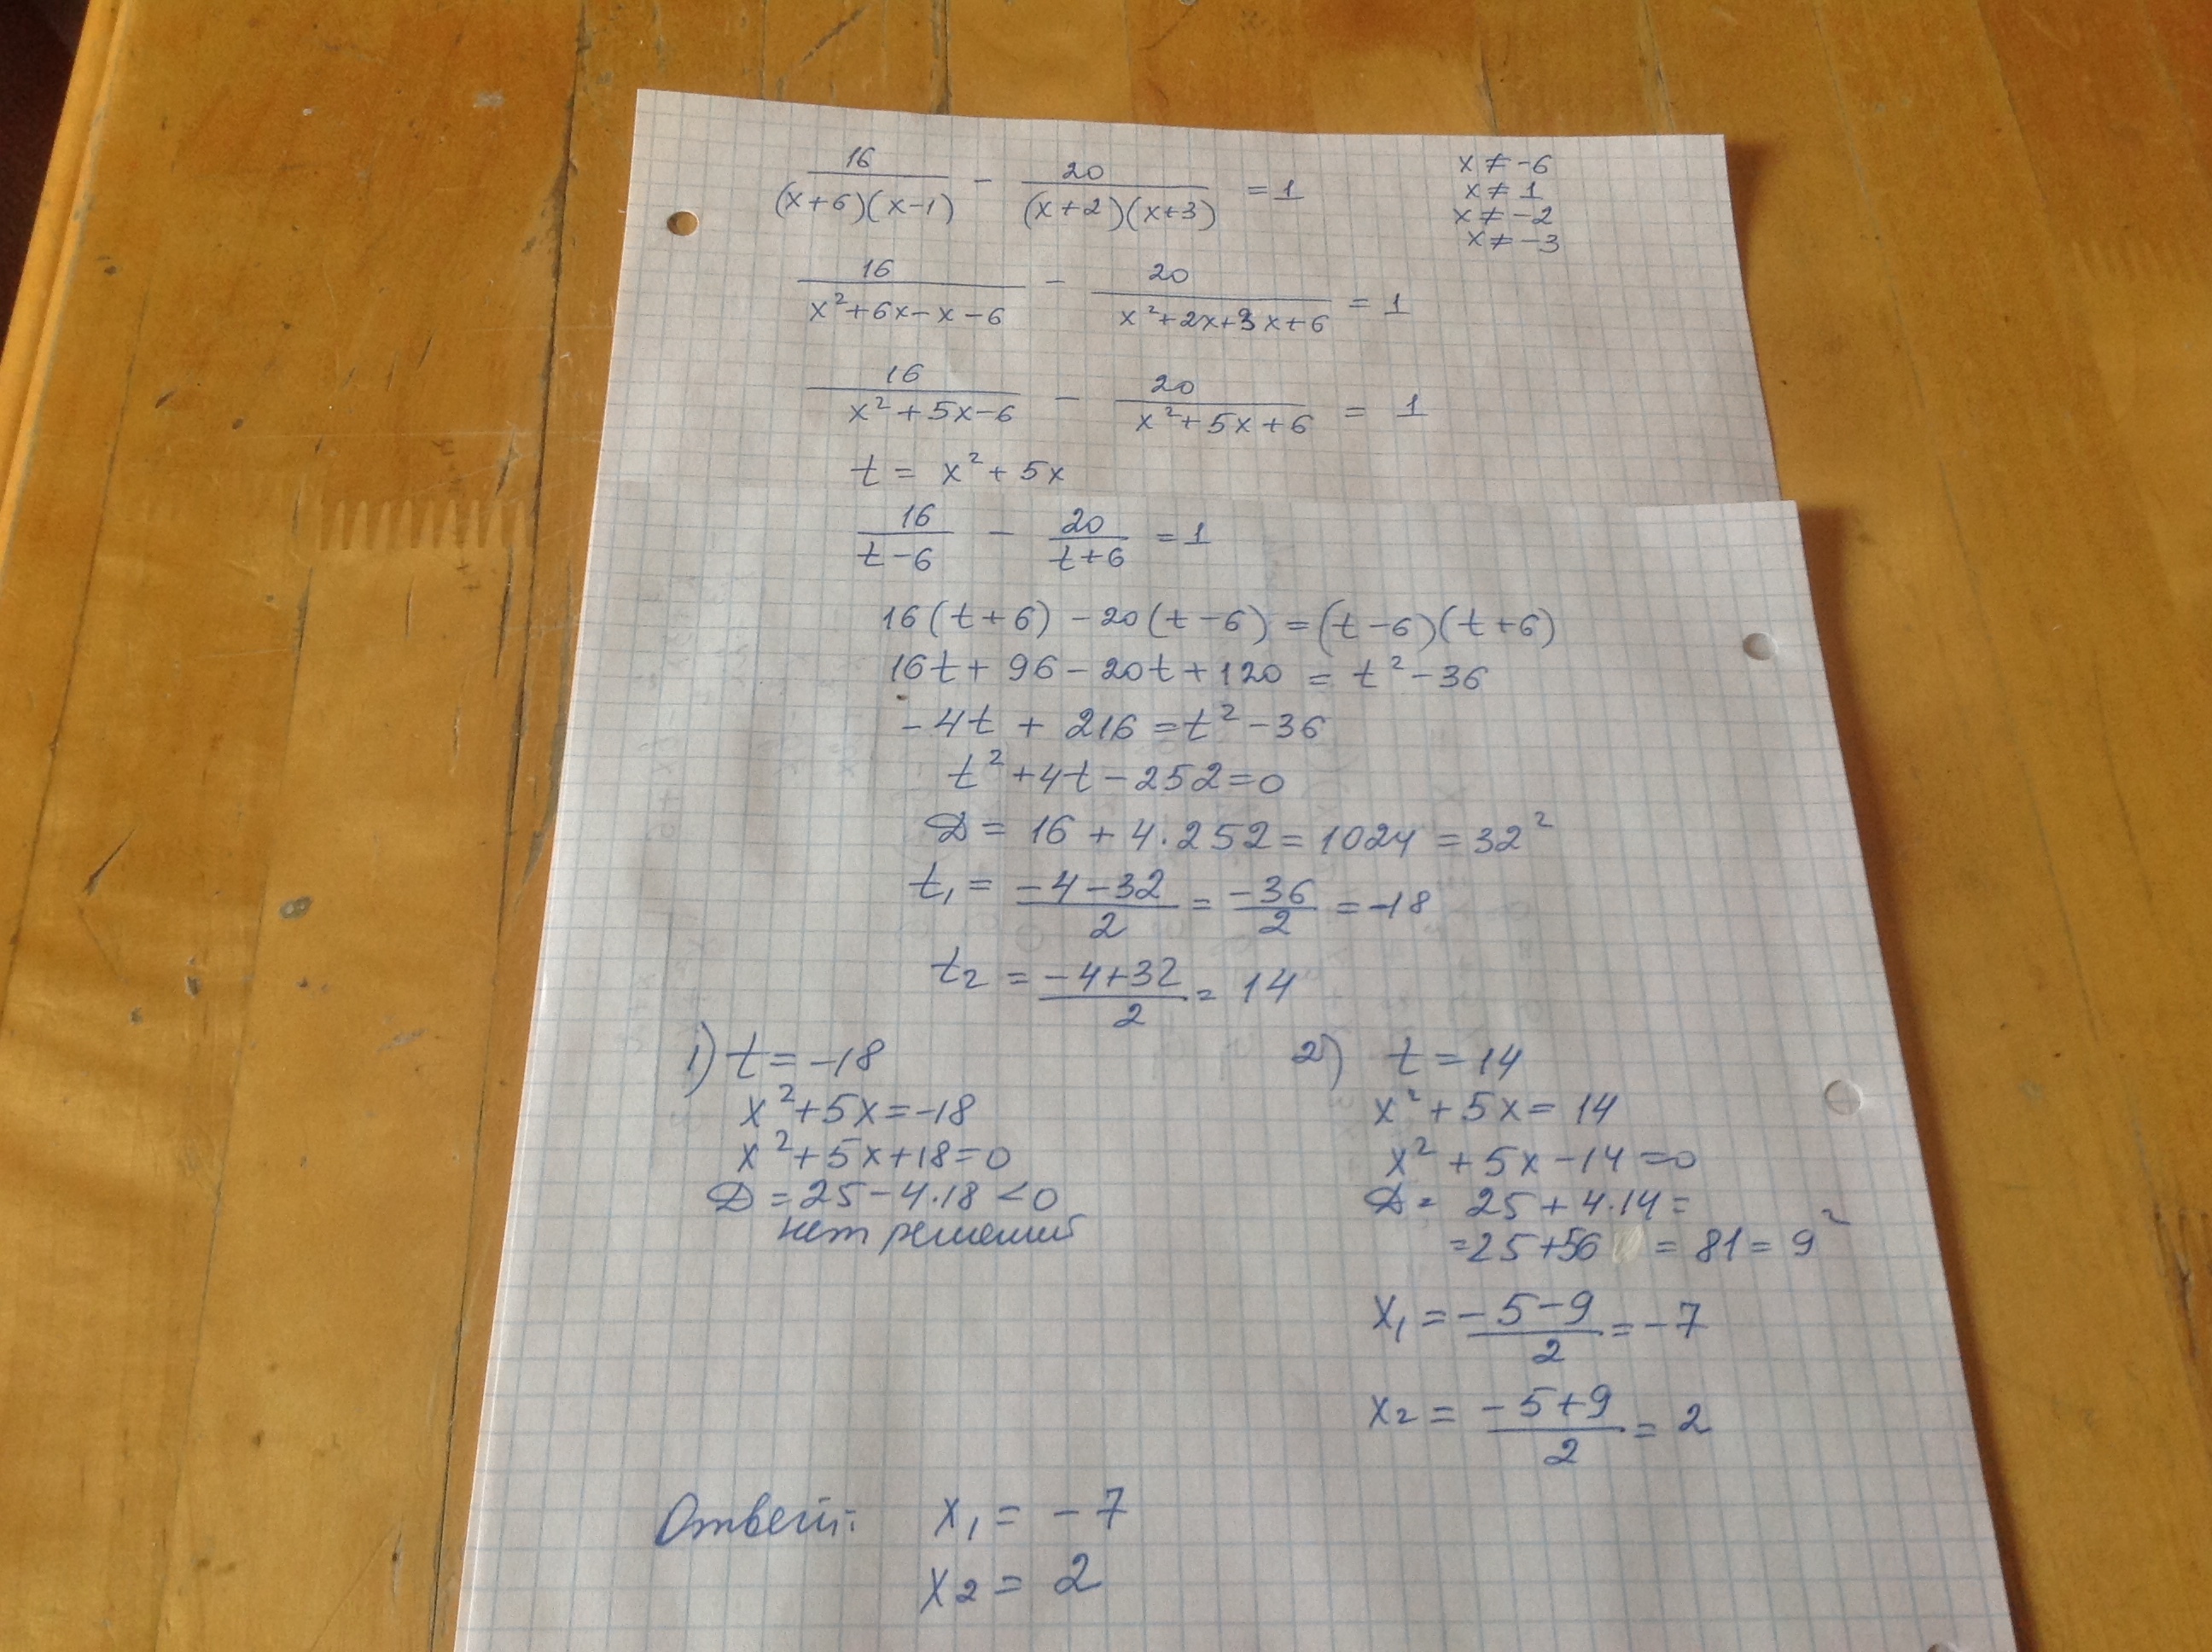 16/((x+6)(x-1)) - 20/((x+2)(x+3)) = 1
x ≠ -6
x ≠ 1
x ≠ -2
x ≠ -3
16/(x²+6x-x-6) - 20/(x²+2x+3x+6) = 1
16/(x²+5x-6) - 20/(x²+5x+6) = 1
t = x²+5x
16/(t-6) - 20/(t+6) = 1
16(t+6) - 20(t-6) = (t-6)(t+6)
16t + 96 - 20t + 120 = t² - 36
-4t + 216 = t² - 36
t² + 4t - 252 = 0
D = 16 + 4·252 = 1024 = 32²
t₁ = (-4-32)/2 = -36/2 = -18
t₂ = (-4+32)/2 = 14
1) t = -18
x²+5x = -18
x²+5x+18=0
D = 25 - 4·18 < 0
нет решений
2) t = 14
x²+5x = 14
x²+5x-14=0
D = 25 + 4·14 =
= 25+56 = 81 = 9²
x₁ = (-5-9)/2 = -7
x₂ = (-5+9)/2 = 2
Ответ: x₁ = -7
x₂ = 2